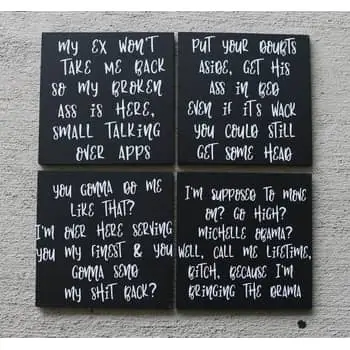 MY EX WON'T
TAKE ME BACK
SO MY BROKEN
ASS IS HERE,
SMALL TALKING
OVER APPS
PUT YOUR DOUBTS
ASIDE, GET HIS
ASS IN BED
EVEN IF IT'S WACK
YOU COULD STILL
GET SOME HEAD
YOU GONNA DO ME
LIKE THAT?
I'M OVER HERE SERVING
YOU MY FINEST & YOU
GONNA SEND
MY SHIT BACK?
I'M SUPPOSED TO MOVE
ON? GO HIGH?
MICHELLE OBAMA?
WELL, CALL ME LIFETIME,
BITCH, BECAUSE I'M
BRINGING THE DRAMA